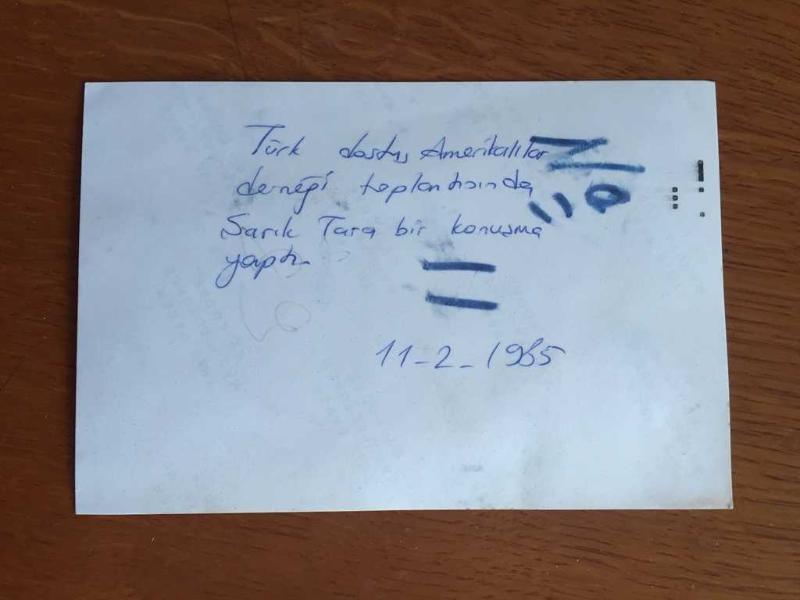 Türk dostu Amerikalılar
derneği toplantısında
Sarık Tara bir konuşma
yaptı.
11-2-1985